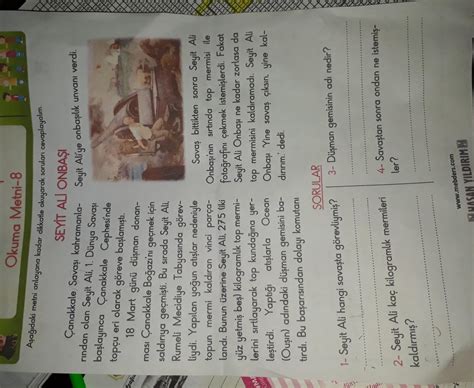 Okuma Metni-8
Aşağıdaki metni anlayana kadar dikkatle okuyarak soruları cevaplayalım.
SEYİT ALİ ONBAŞI
Çanakkale Savaşı kahramanla-
rından olan Seyit Ali, 1. Dünya Savaşı
başlayınca Çanakkale Cephesi'nde
topçu eri olarak göreve başlamıştı.
18 Mart günü düşman donan-
ması Çanakkale Boğazı'nı geçmek için
saldırıya geçmişti. Bu sırada Seyit Ali,
Rumeli Mecidiye Tabyasında görev-
liydi. Yapılan yoğun atışlar nedeniyle
topun mermi kaldıran vinci parça-
landı. Bunun üzerine Seyit Ali, 275 (iki
yüz yetmiş beş) kilogramlık top mermi-
lerini sırtlayarak top kundağına yer-
leştirdi. Yaptığı atışlarla Ocean
(Ouşın) adındaki düşman gemisini ba-
tırdı. Bu başarısından dolayı komutanı
Seyit Ali'ye onbaşılık unvanı verdi.
Savaş bittikten sonra Seyit Ali
Onbaşı'nın sırtında top mermisi ile
fotoğrafını çekmek istemişlerdi. Fakat
Seyit Ali Onbaşı ne kadar zorlasa da
top mermisini kaldıramadı. Seyit Ali
Onbaşı "Yine savaş çıksın, yine kal-
dırırım." dedi.
SORULAR
1- Seyit Ali hangi savaşta görevliymiş?
2- Seyit Ali kaç kilogramlık mermileri
kaldırmış?
3- Düşman gemisinin adı nedir?
4- Savaştan sonra ondan ne istemiş-
ler?
www.mebders.com
HASAN YILDIRIM